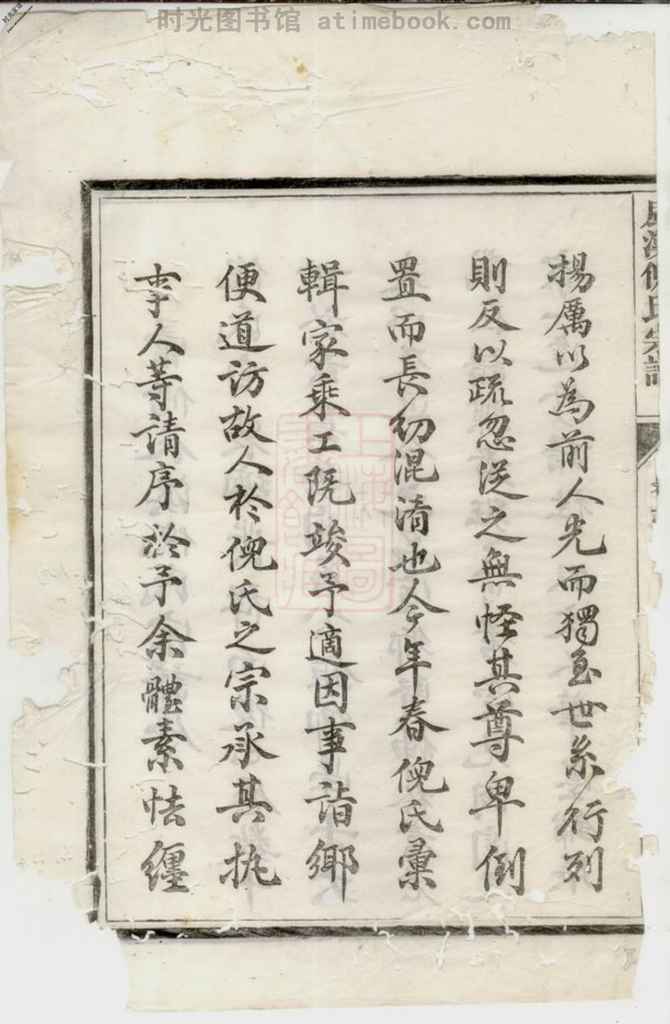 时光图书馆 atimebook.com
倪氏宗譜
揚厲以為前人光而獨至世系行列
則反以疏忽從之無怪其尊卑倒
置而長幼混淆也今年春倪氏彙
輯家乘工既竣予適因事詣鄉
便道訪故人於倪氏之宗承其執
事人等請序於予余體素怯纏